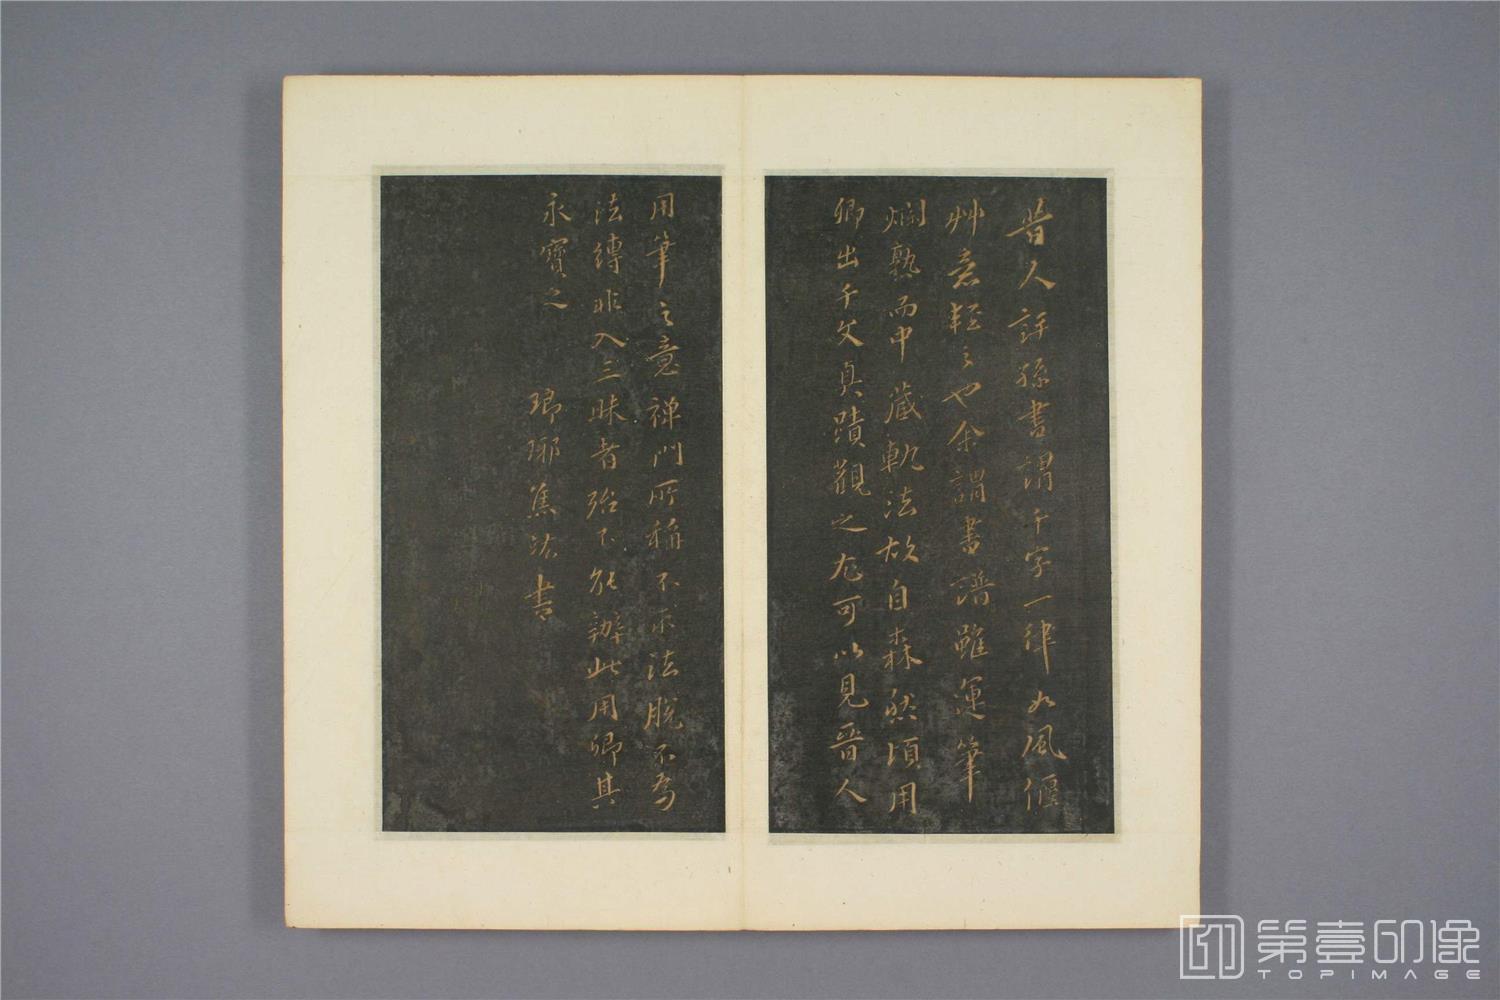 昔人評孫書謂千字一律如風偃
艸意輕之也余謂書譜雖運筆
爛熟而中藏軌法故自森然頃用
卿出千文真蹟觀之尤可以見晉人
用筆之意禪門所稱不求法脫不為
法縛非入三昧者殆不能辦此用卿其
永寶之
琅琊焦竑書
第壹印像
TOPIMAGE